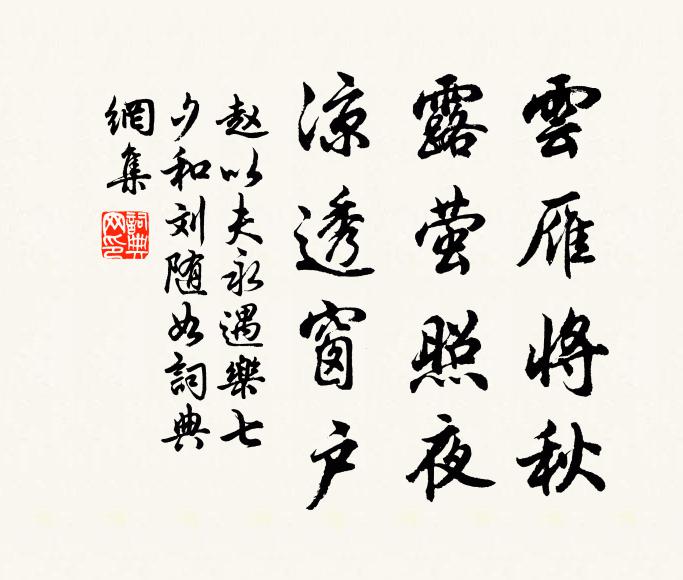 雲雁將秋
露萤照夜
凉透窗户
赵以夫永遇樂七
夕和刘随如詞典
網集
詞典网印